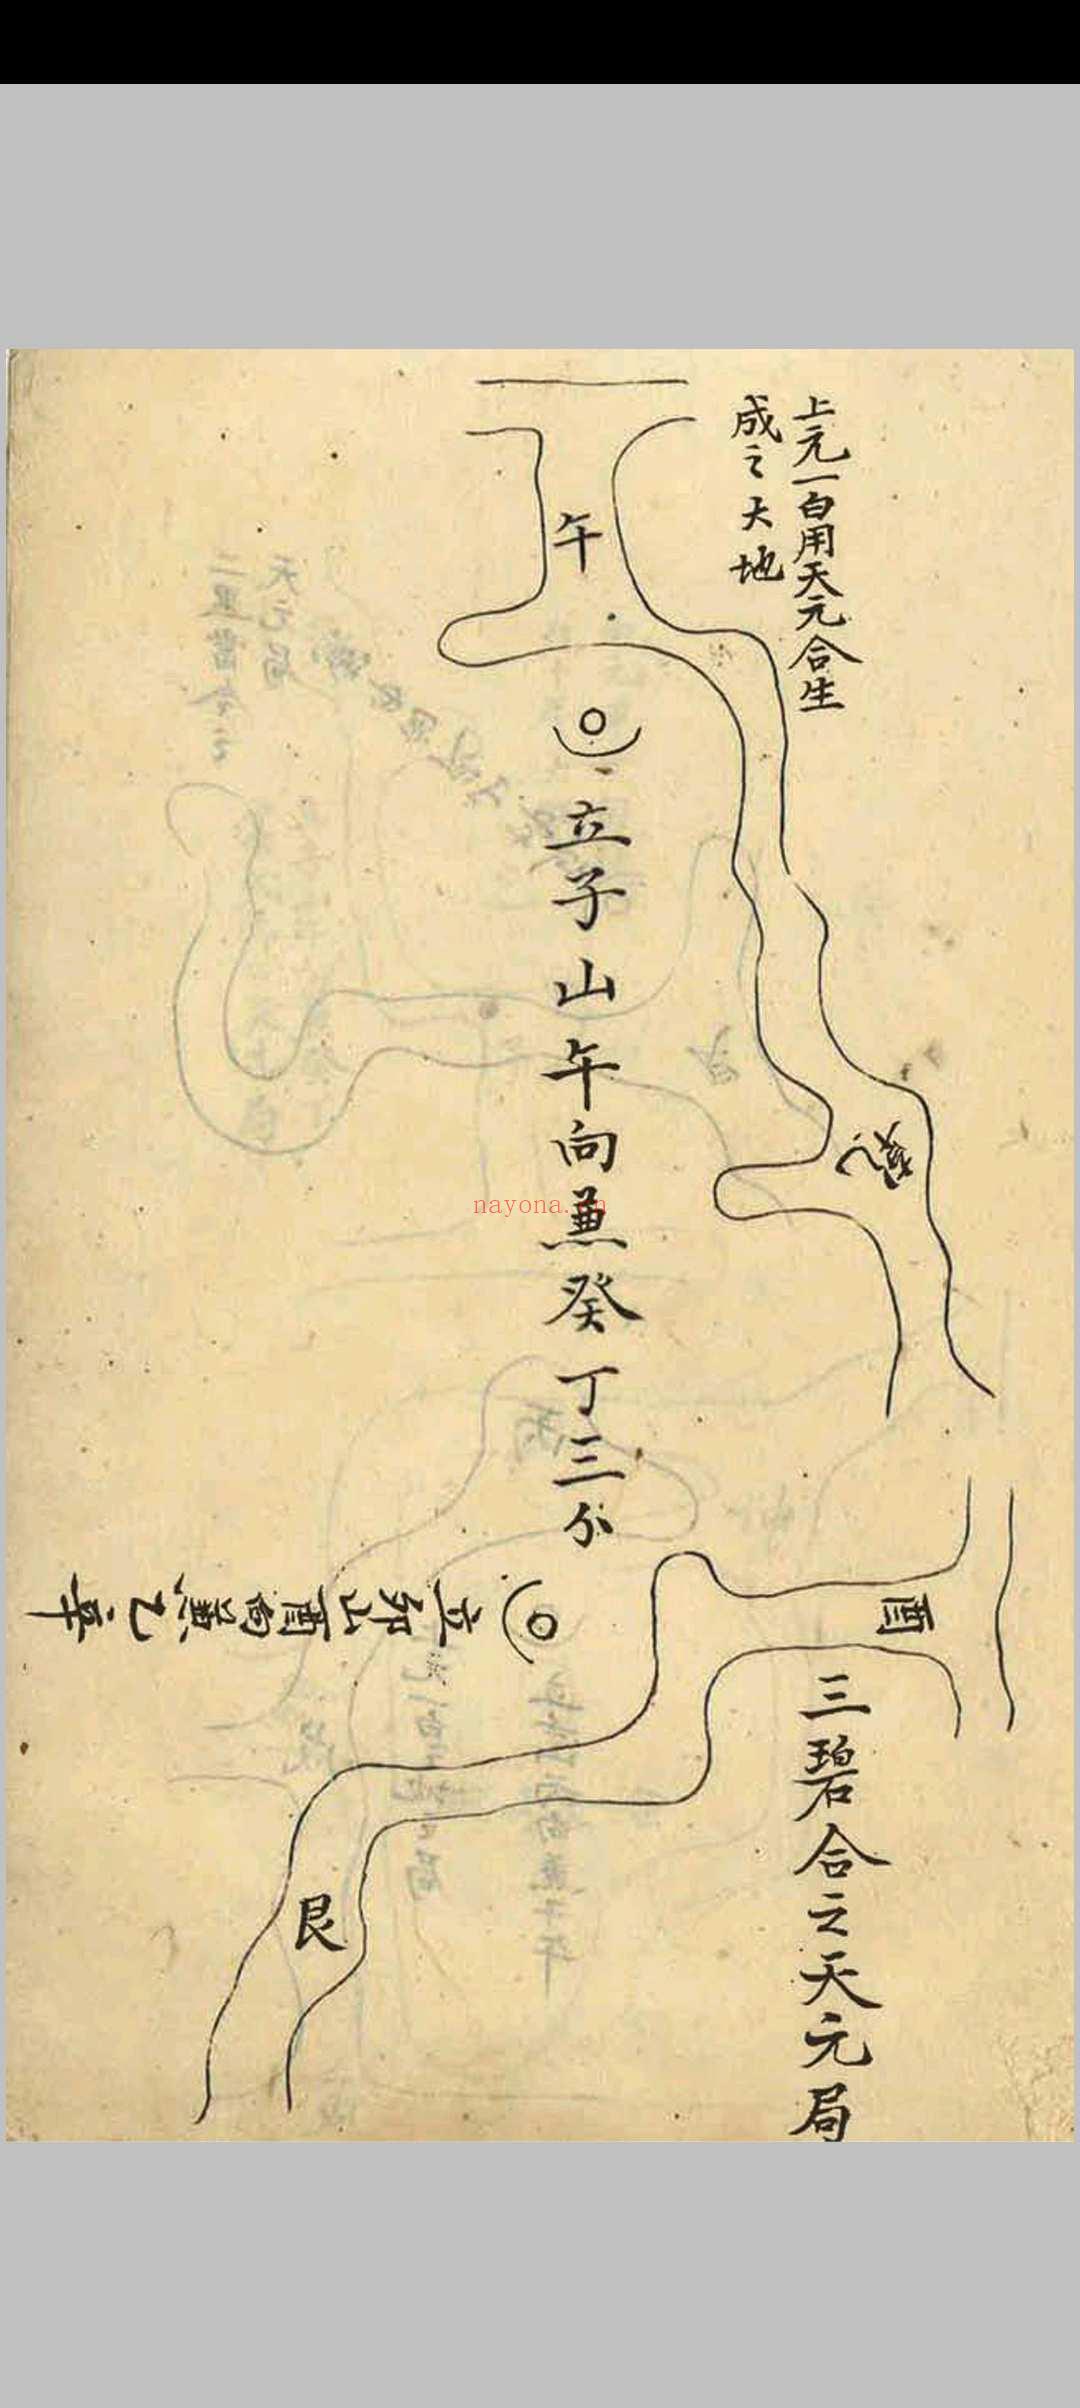 上元一白用天元合生
成之大地
午
乾
立子山午向兼癸丁三分
nayona.cn
酉
立卯山酉向兼乙辛
三碧合之天元局
艮